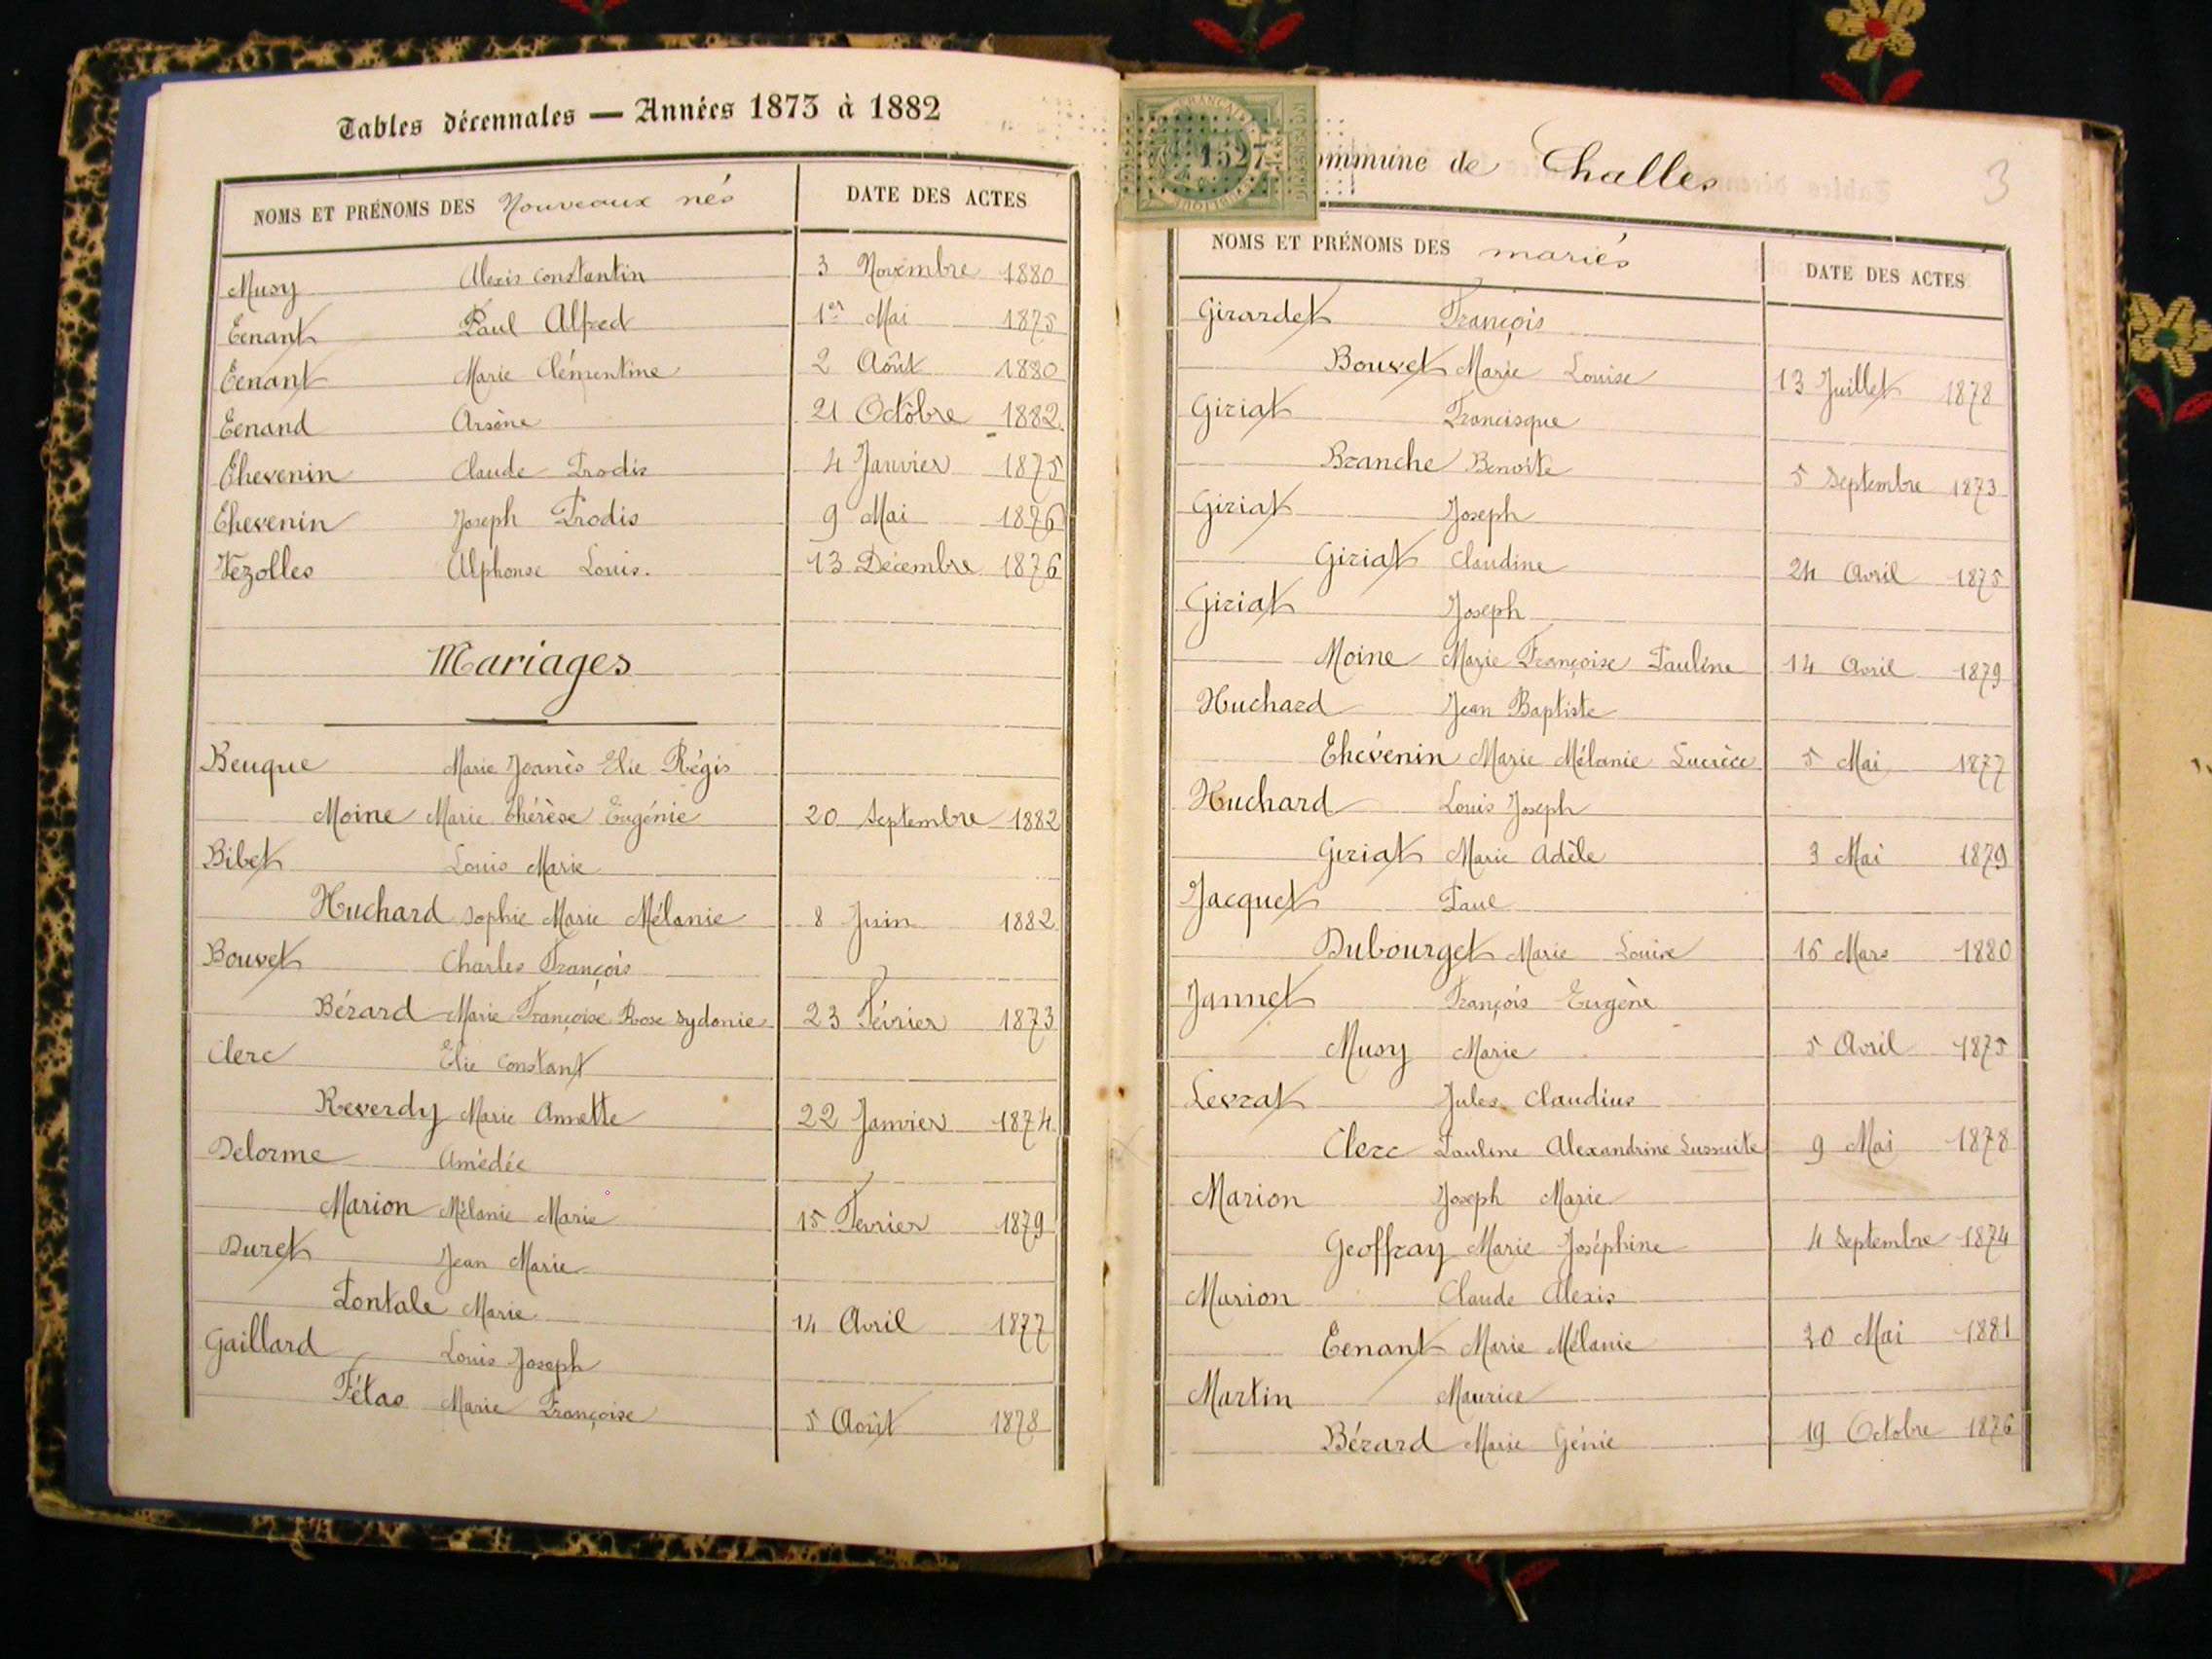 Tables décennales — Années 1873 à 1882
NOMS ET PRÉNOMS DES Nouveaux nés DATE DES ACTES
Musy Alexis Constantin 3 Novembre 1880
Tenant Paul Alfred 1er Mai 1875
Tenant Marie Clémentine 2 Août 1880
Tenand Arsène 21 Octobre 1882
Thevenin Claude Prodis 4 Janvier 1875
Thevenin Joseph Prodis 9 Mai 1876
Vezolles Alphonse Louis. 13 Décembre 1876
Mariages
Beuque Marie Joanès Elie Régis
Moine Marie Thérèse Eugénie 20 Septembre 1882
Bibet Louis Marie
Huchard Sophie Marie Mélanie 8 Juin 1882
Bouvet Charles François
Bérard Marie Françoise Rose Sydonie 23 Février 1873
Clerc Elie Constant
Reverdy Marie Annette 22 Janvier 1874
Delorme Amédée
Marion Mélanie Marie 15 Fevrier 1879
Duret Jean Marie
Pontale Marie 14 Avril 1877
Gaillard Louis Joseph
Fétas Marie Françoise 5 Août 1878
1527
ommune de Challes
3
NOMS ET PRÉNOMS DES mariés DATE DES ACTES
Girardet François
Bouvet Marie Louise 13 Juillet 1878
Giriat Francisque
Branche Benoite 5 Septembre 1873
Giriat Joseph
Giriat Claudine 24 Avril 1875
Giriat Joseph
Moine Marie Françoise Pauline 14 Avril 1879
Huchard Jean Baptiste
Thévenin Marie Mélanie Lucrèce 5 Mai 1877
Huchard Louis Joseph
Giriat Marie Adèle 3 Mai 1879
Jacquet Paul
Dubourget Marie Louise 16 Mars 1880
Jannet François Eugène
Musy Marie 5 Avril 1875
Levrat Jules Claudius
Clerc Pauline Alexandrine 9 Mai 1878
Marion Joseph Marie
Geoffray Marie Joséphine 4 Septembre 1874
Marion Claude Alexis
Tenant Marie Mélanie 30 Mai 1881
Martin Maurice
Bérard Marie Génie 19 Octobre 1876